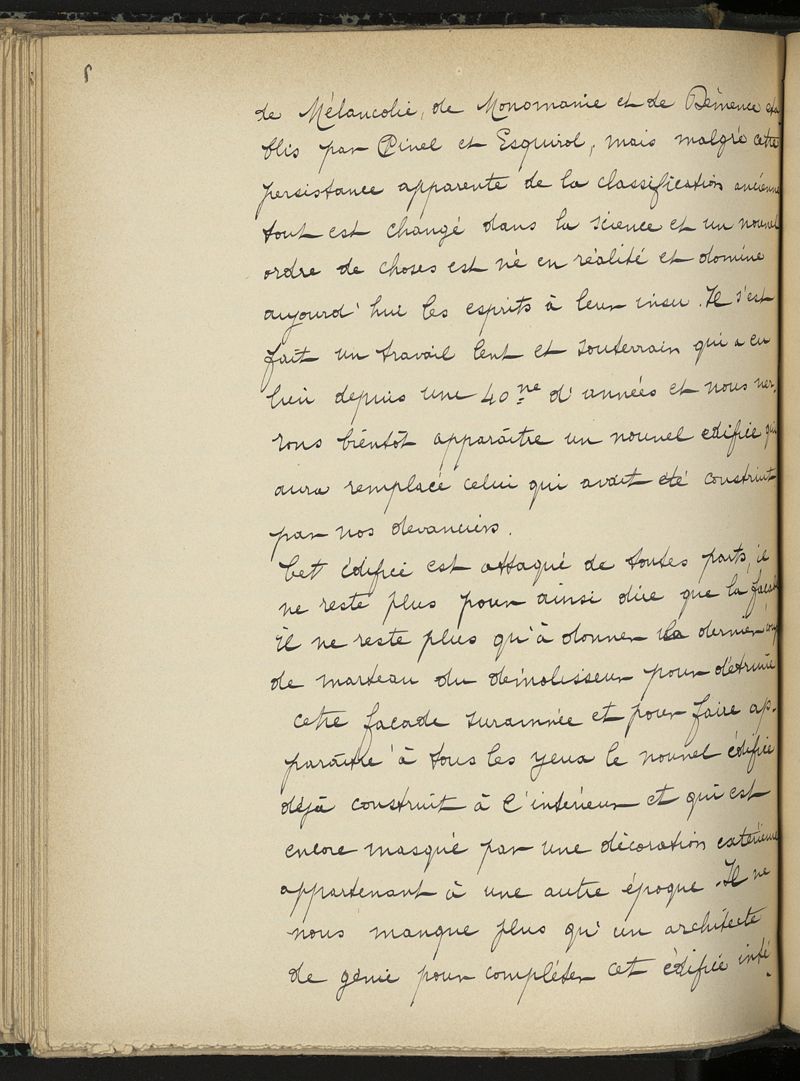 de Mélancolie, de Monomanie et de Démence éta
blis par Pinel et Esquirol, mais malgré cette
persistance apparente de la classification ancienne
tout est changé dans la science et un nouvel
ordre de choses est né en réalité et domine
aujourd'hui les esprits à leur insu. Il s'est
fait un travail lent et souterrain qui a eu
lieu depuis une 40ne d'années et nous ver-
rons bientôt apparaître un nouvel édifice qui
aura remplacé celui qui avait été construit
par nos devanciers.
Cet édifice est attaqué de toutes parts, il
ne reste plus pour ainsi dire que la façade
il ne reste plus qu'à donner le dernier coup
de marteau du démolisseur pour détruire
cette façade surannée et pour faire ap-
paraître à tous les yeux le nouvel édifice
déjà construit à l'intérieur et qui est
encore masqué par une décoration extérieure
appartenant à une autre époque. Il ne
nous manque plus qu'un architecte
de génie pour compléter cet édifice inté